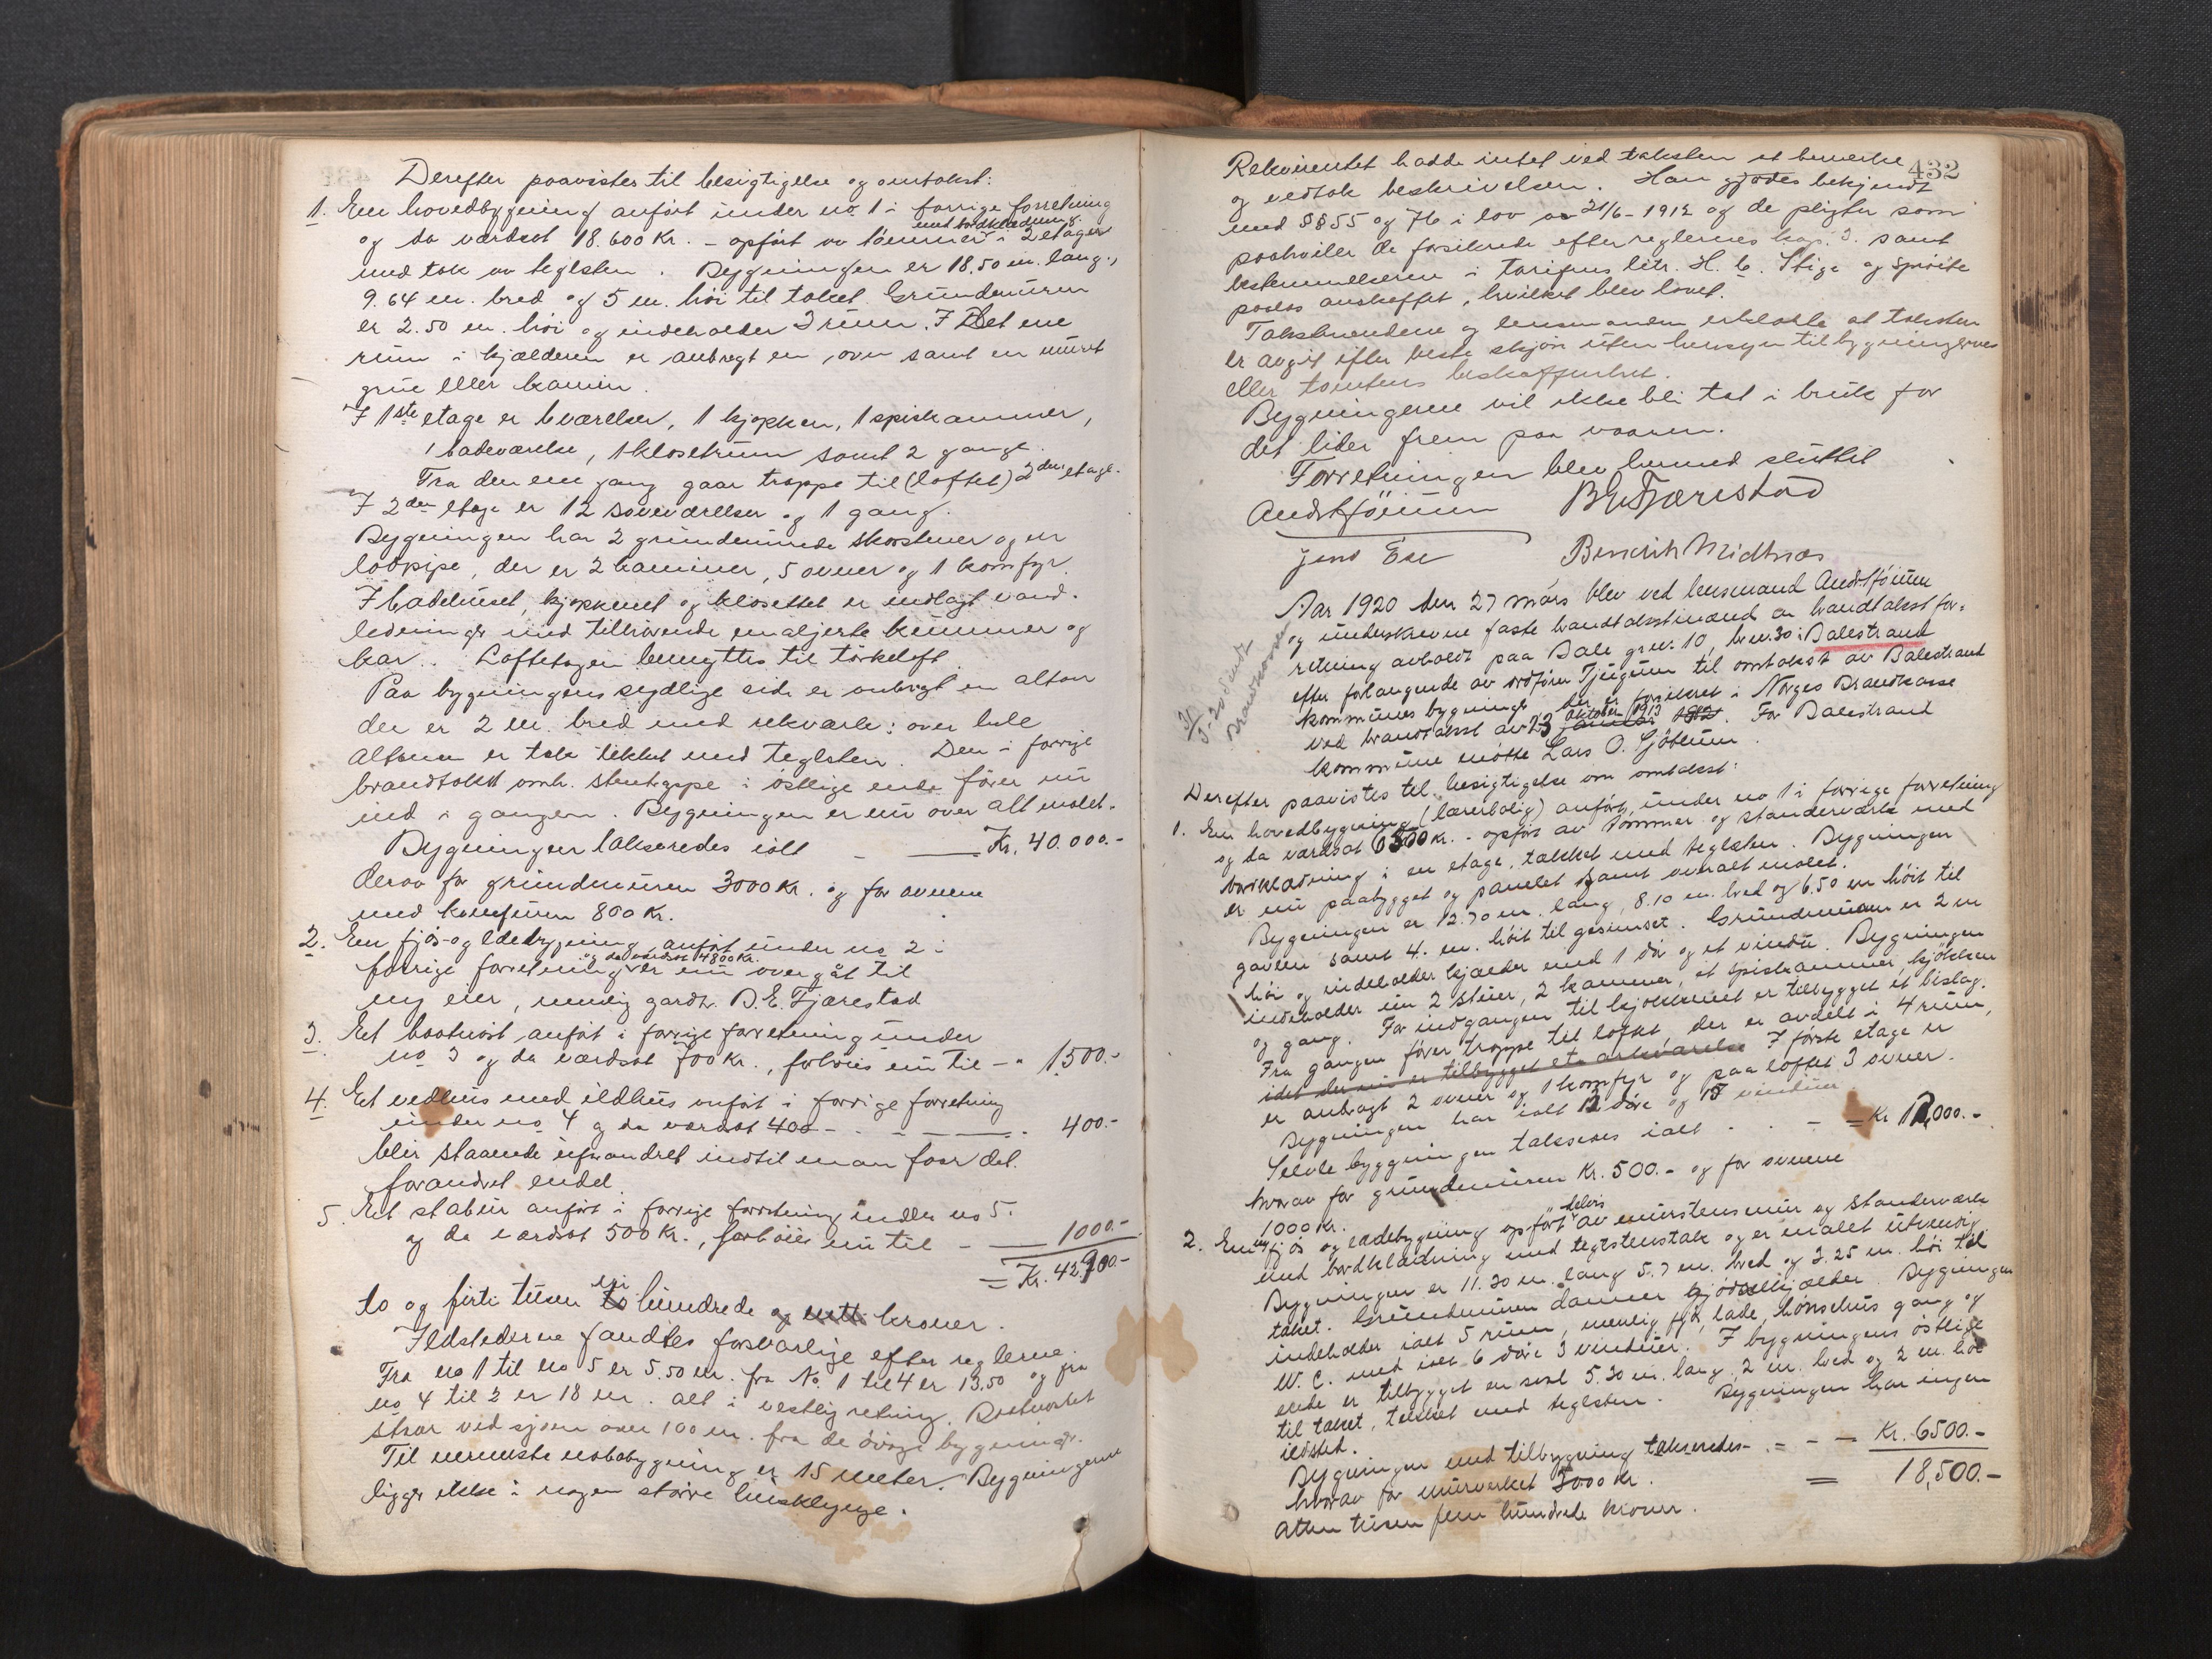 Derefter paavistes til besigtigelse og omtakst:
1. En hovedbygning anført under no. 1 i forrige forretning
med bordklædning.
og da værdsat 18.600 Kr. - opført av tømmer i 2 etager
med tak av teglsten. Bygningen er 18,50 m. lang,
9.64 m. bred og 5 m. höi til taket. Grundmuren
er 2.50 m. höi og indeholder 3 rum. I Det ene
rum i kjælderen er anbragt en ovn samt en muret
grue eller kamin.
I 1ste etage er 6 værelser, 1 kjøkken, 1 spiskammer,
1 badeværelse, 1 klosetrum samt 2 gange.
Fra den ene gang gaar trappe til (loftet) 2den etage.
I 2den etage er 12 soveværelser og 1 gang.
Bygningen har 2 grundmurede skorstener og en
lodpipe, der er 2 kaminer, 5 ovner og 1 komfyr.
I badehuset, kjøkkenet og klosettet er indlagt vand-
ledninger med tilhörende emaljerte kummer og
kar. Loftetagen benyttes til törkeloft.
Paa bygningens sydlige side er anbragt en altan
der er 2 m. bred med rekværk; over hele
altanen er tak tækket med teglsten. Den i forrige
brandtakst omh. stentrappe i östlige ende förer nu
ind i gangen. Bygningen er nu over alt malet.
Bygningen takseredes ialt - Kr. 40.000.-
derav for grundmuren 3000 Kr. og for ovnene
med komfyren 800 Kr.
2. En fjös- og ladebygning anført under no 2 i
og da værdsat 4800 Kr.
forrige forretning er nu overgåt til
ny eier, nemlig gardbr. B. E. Fjærestad
3. Et baatnöst anfört i forrige forretning under
no 3 og da værdsat 700 Kr., forhöies nu til - " 1500.-
4. Et vedhus med ildhus anfört i forrige forretning
under no 4 og da værdsat 400 - - - 400.-
blir staaende uforandret indtil man faar det
forandret endel.
5. Et stabur anfört i forrige forretning under no 5.
og da værdsat 500 Kr., forhöies nu til - 1000.-
= Kr. 42.900.-
ni
to og firti tusen to hundrede og nitti kroner.
Ildstederne fandtes forsvarlige efter reglerne.
Fra no 1 til no 5 er 5.50 m. fra No. 1 til 4 er 13.50 og fra
no 4 til 2 er 18 m. alt i vestlig retning. Baatnöstet
staar ved sjöen over 100 m. fra de övrige bygninger.
Til nærmeste nabobygning er 15 meter. Bygningerne
ligger ikke i nogen större husklynge.
432
Rekvirentet hadde intet ved taksten at bemerke
og vedtok beskrivelsen. Han gjødes bekjendt
med §§ 55 og 76 i lov av 21/6 - 1912 og de pligter som
paahviler de forsikrede efter reglernes kap. 3. samt
bestemmelserne i tarifens litr. H. 6. Stige og spröite
paalas anskaffet, hvilket blev lovet.
Takstmændene og lensmanden erklærte at taksten
er avgit efter beste skjön uten hensyn til bygningernes
eller tomtens beskaffenhet.
Bygningerne vil ikke bli tat i bruk for
det lider frem paa vaaren.
Forretningen blev hermed sluttet
B. E. Fjærestad
Jens Ese Bendrik Midtnæs
Aar 1920 den 27 mars blev ved lensmand
og underskrevne faste brandtakstmænd en brandtakstfor-
retning avholdt paa Bale gr.nr. 10, br.nr. 30 i Balestrand
efter forlangende av ordförer Tjugum til omtakst av Balestrand
kommunes bygninger der er forsikret i Norges Brandkasse
oktober 1913
ved brandtakst av 23 1912. For Balestrand
kommune mötte Lars O. Sjötun.
Derefter paavistes til besigtigelse om omtakst:
1. En hovedbygning (lærerbolig) anfört under no 1 i forrige forretning
og da værdsat 6500 Kr. - opfört av tömmer og standerværk med
bordklædning i en etage, tækket med teglsten. Bygningen
er nu paabygget og panelet samt overalt malet.
Bygningen er 12.70 m. lang, 8.10 m. bred og 6.50 m höit til
gavlen samt 4. m. höit til gesimset. Grundmuren er 2 m
höi og indeholder kjælder med 1 dör og et vindu. Bygningen
indeholder nu 2 stuer, 2 kammer, et spiskammer, kjökken
og gang. For indgangen til kjökkenet er tilbygget et bislag.
Fra gangen förer trappe til loftet, der er avdelt i 4 rum,
idet der nu er tilbygget et arkværelse I förste etage er
er anbragt 2 ovner og 1 komfyr og paa loftet 3 ovner.
Bygningen har ialt 12 döre og 15 vinduer
Selve bygningen takseres ialt - - - = Kr 12,000.-
hvorav for grundmuren Kr. 500.- og for ovnene
1000 Kr.
delvis
2. En ny fjös og ladebygning opfört av murstensmur og standerværk
med bordklædning med teglstenstak og er malet utvendig
Bygningen er 11.30 m. lang 5.7 m. bred og 3.25 m. höi til
taket. Grundmuren danner gjödselkjælder. Bygningen
indeholder ialt 5 rum, nemlig fjös, lade, hönsehus gang og
W. C. med ialt 6 döre 3 vinduer. I bygningens östlige
ende er tilbygget en sval 5.30 m. lang, 2 m. bred og 2 m. höi
til taket, tækket med teglsten. Bygningen har ingen
ildsted.
Bygningen med tilbygning takseredes - = - - Kr. 6500.-
hvorav for murverket 3000 Kr. = 18,500.-
Atten tusen fem hundrede kroner.